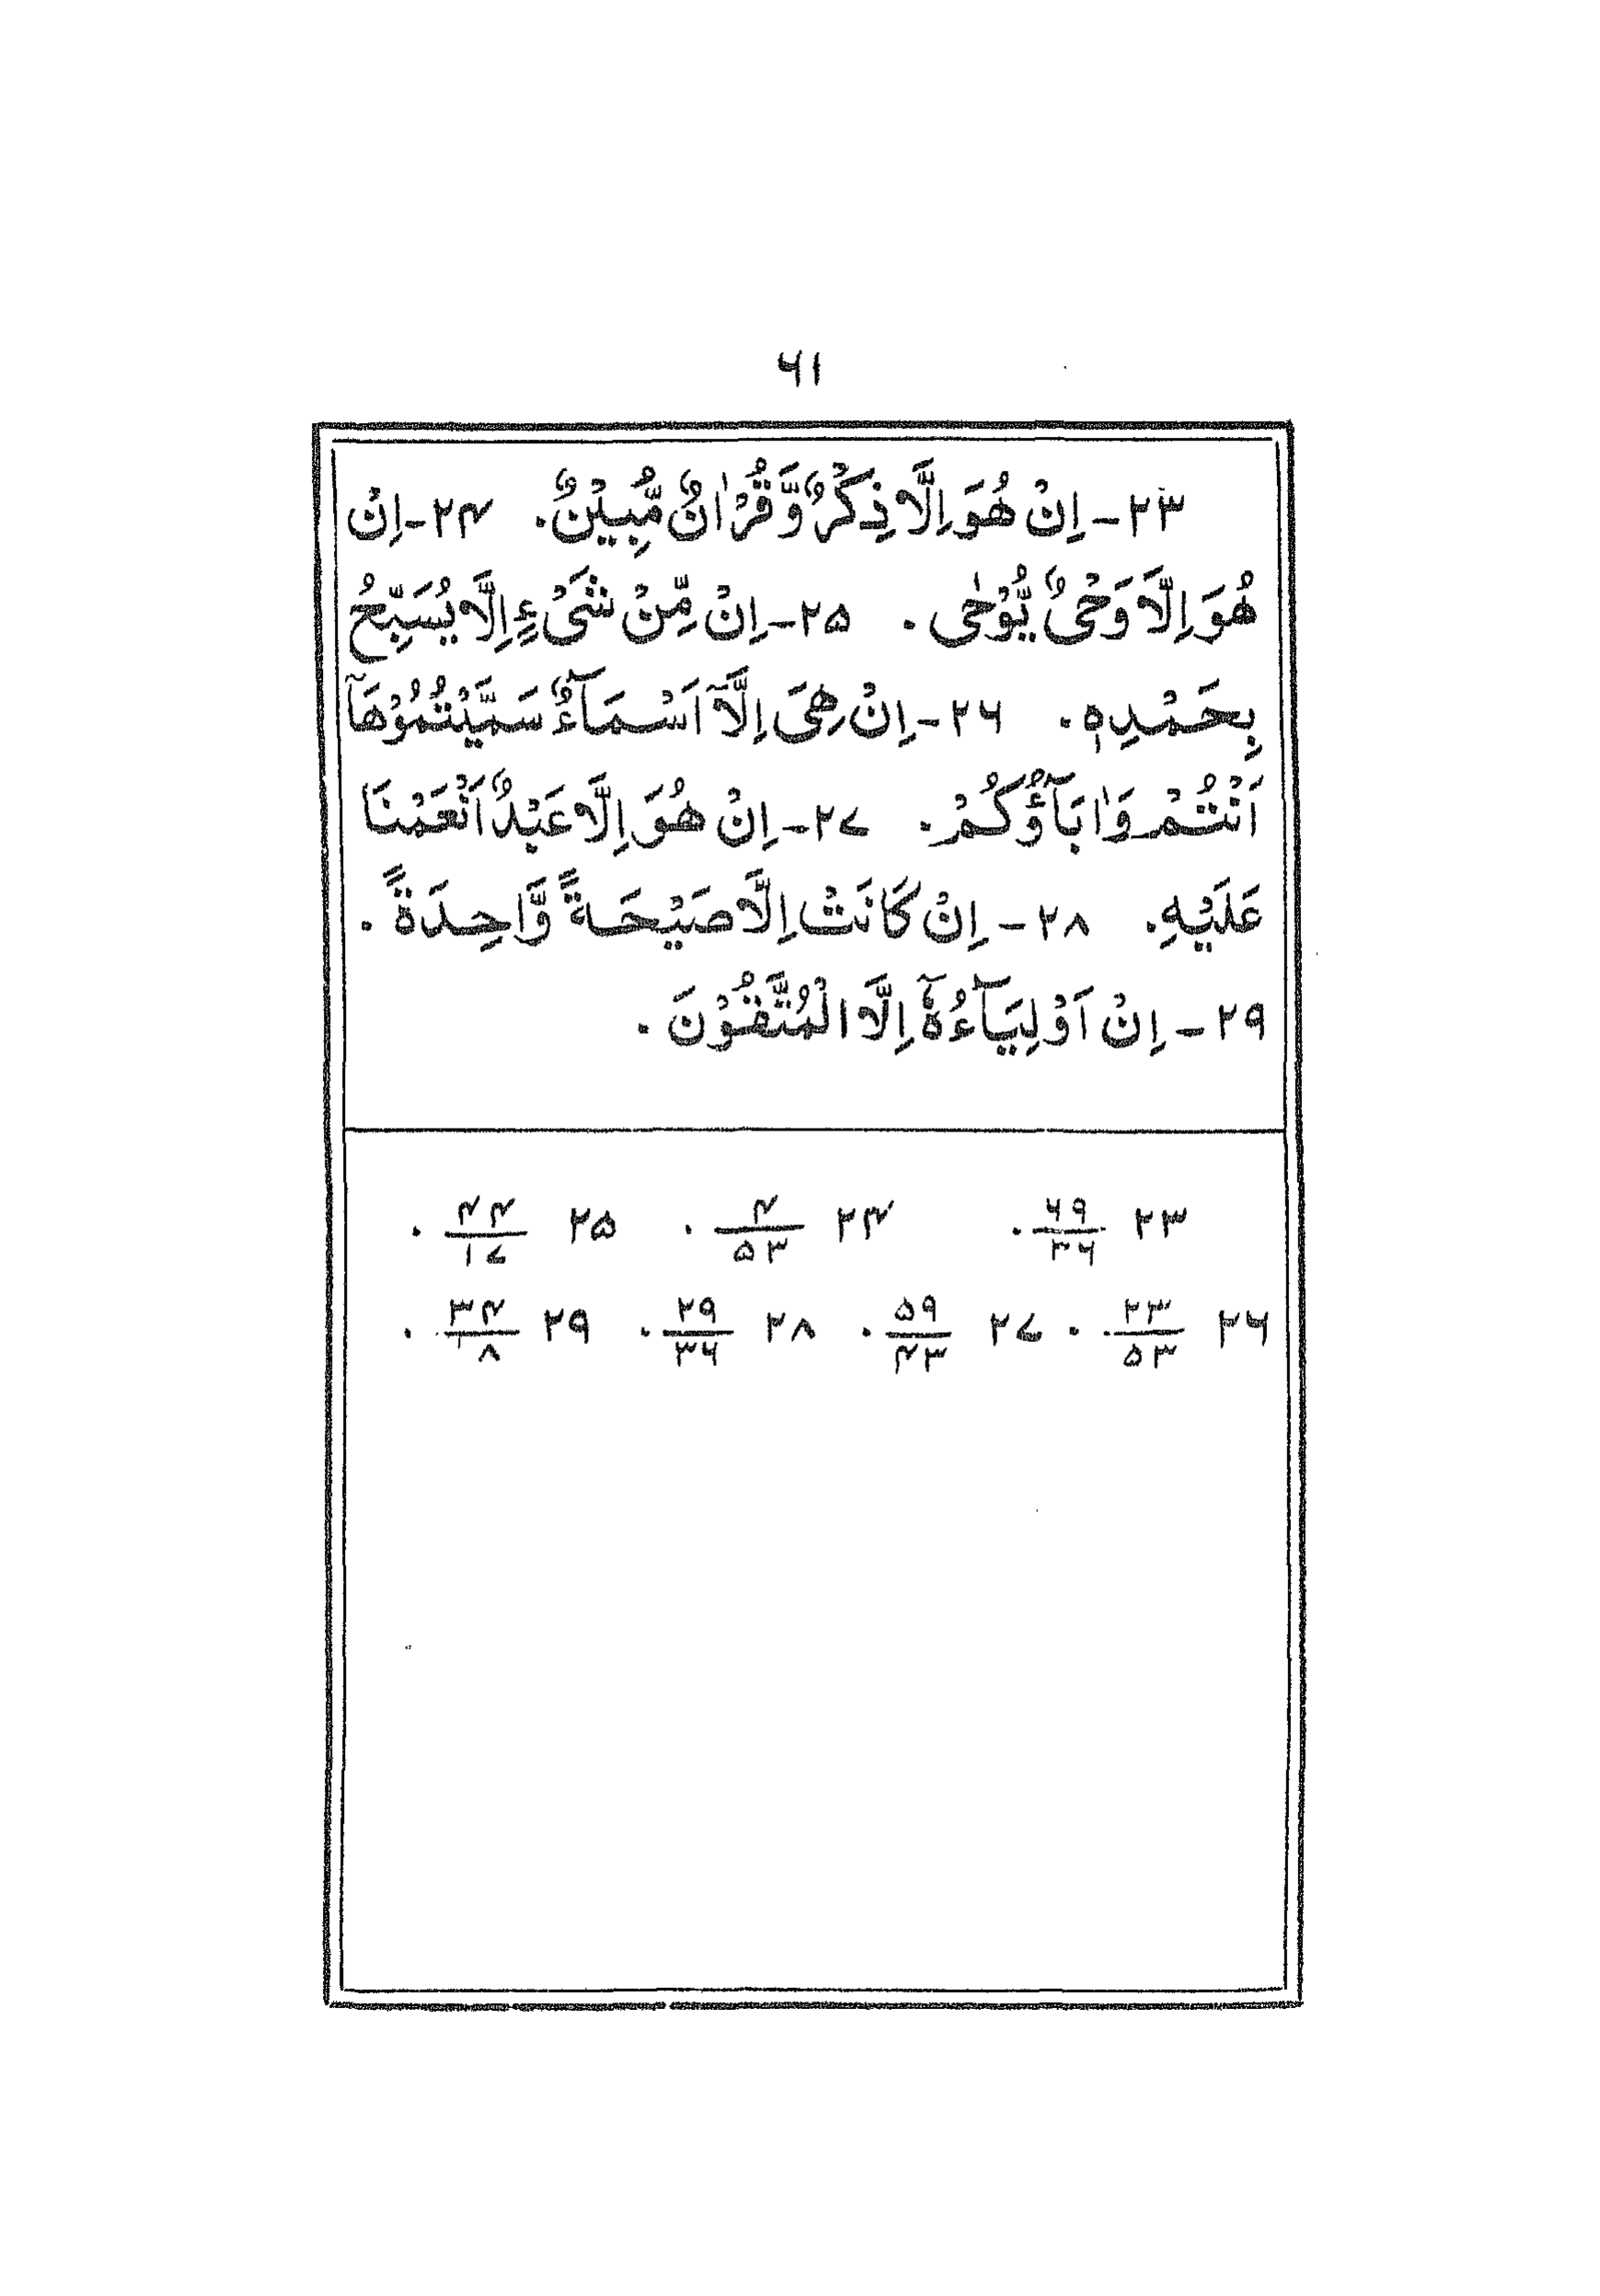 ۶۱
۲۳- اِنْ هُوَ اِلَّا ذِكْرٌ وَّ قُرْاٰنٌ مُّبِيْنٌ. ۲۴- اِنْ
هُوَ اِلَّا وَحْیٌ یُّوْحٰی. ۲۵- اِنْ مِّنْ شَیْءٍ اِلَّا یُسَبِّحُ
بِحَمْدِهٖ. ۲۶- اِنْ هِیَ اِلَّاۤ اَسْمَآءٌ سَمَّیْتُمُوْهَاۤ
اَنْتُمْ وَاٰبَآؤُكُمْ. ۲۷- اِنْ هُوَ اِلَّا عَبْدٌ اَنْعَمْنَا
عَلَیْهِ. ۲۸- اِنْ كَانَتْ اِلَّا صَیْحَةً وَّاحِدَةً.
۲۹- اِنْ اَوْلِیَآءُهٗۤ اِلَّا الْمُتَّقُوْنَ.
۲۳ ۶۹/۳۶. ۲۴ ۴/۵۳. ۲۵ ۴۴/۱۷.
۲۶ ۲۳/۵۳. ۲۷ ۵۹/۴۳. ۲۸ ۲۹/۳۶. ۲۹ ۳۴/۸.